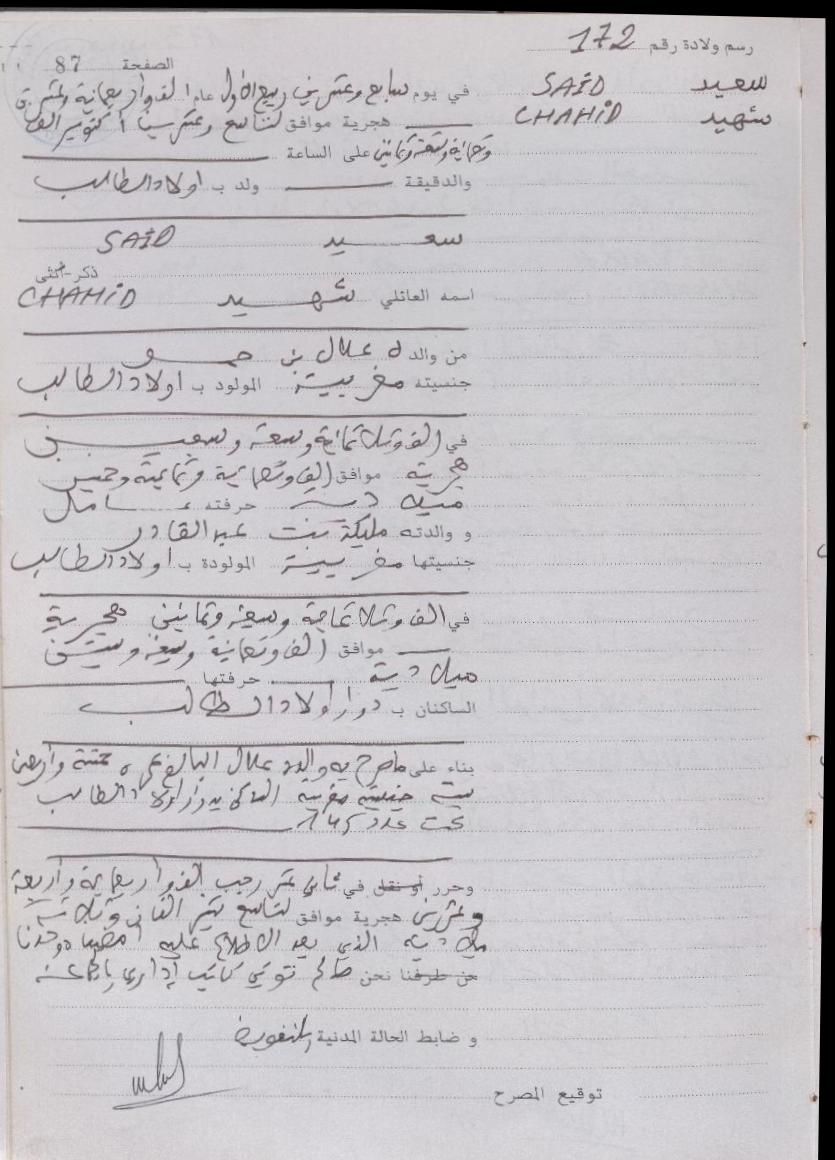 رسم ولادة رقم 172
الصفحة 87
سعيد SAÏD
شهيد CHAHiD
في يوم سابع وعشرين ربيع الأول عام ألف وأربعمائة وعشرة
هجرية موافق لتاسع وعشرين أكتوبر ألف
وتسعمائة وتسعة وثمانين على الساعة
والدقيقة ولد ب اولاد الطالب
سعيد SAÏD
ذكر-أنثى
اسمه العائلي شهيد CHAHiD
من والده علال بن حمو
جنسيته مغربية المولود ب اولاد الطالب
في ألف وثلاثمائة وسبعة وسبعين
هجرية موافق ألف وتسعمائة وثمانية وخمسين
ميلادية حرفته عامل
و والدته مليكة بنت عبد القادر
جنسيتها مغربية المولودة ب اولاد الطالب
في ألف وثلاثمائة وسبعة وثمانين هجرية
موافق ألف وتسعمائة وسبعة وستين
ميلادية حرفتها
الساكنان ب دوار اولاد الطالب
بناء على ما صرح به والده علال البالغ عمره خمسة وأربعين
سنة جنسيته مغربية الساكن بدوار اولاد الطالب
تحت عدد
وحرر أو نقل في ثاني عشر رجب ألف وأربعمائة وأربعة
وعشرين هجرية موافق لتاسع شتنبر ألفان وثلاثة
ميلادية الذي بعد الاطلاع عليه أمضيناه وحدنا
من طرفنا نحن صالح كاتب إداري
و ضابط الحالة المدنية بالتفويض
توقيع المصرح